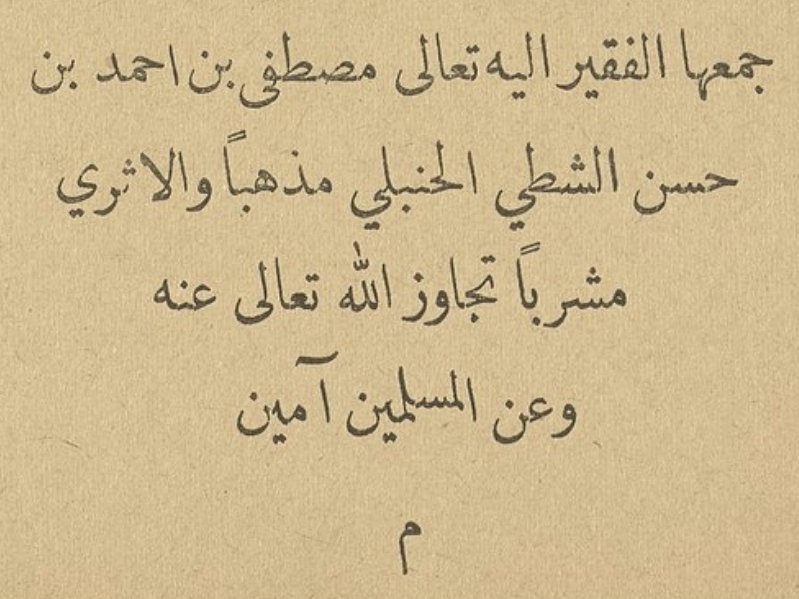 جمعها الفقير اليه تعالى مصطفى بن احمد بن
حسن الشطي الحنبلي مذهباً والاثري
مشرباً تجاوز الله تعالى عنه
وعن المسلمين آمين
م